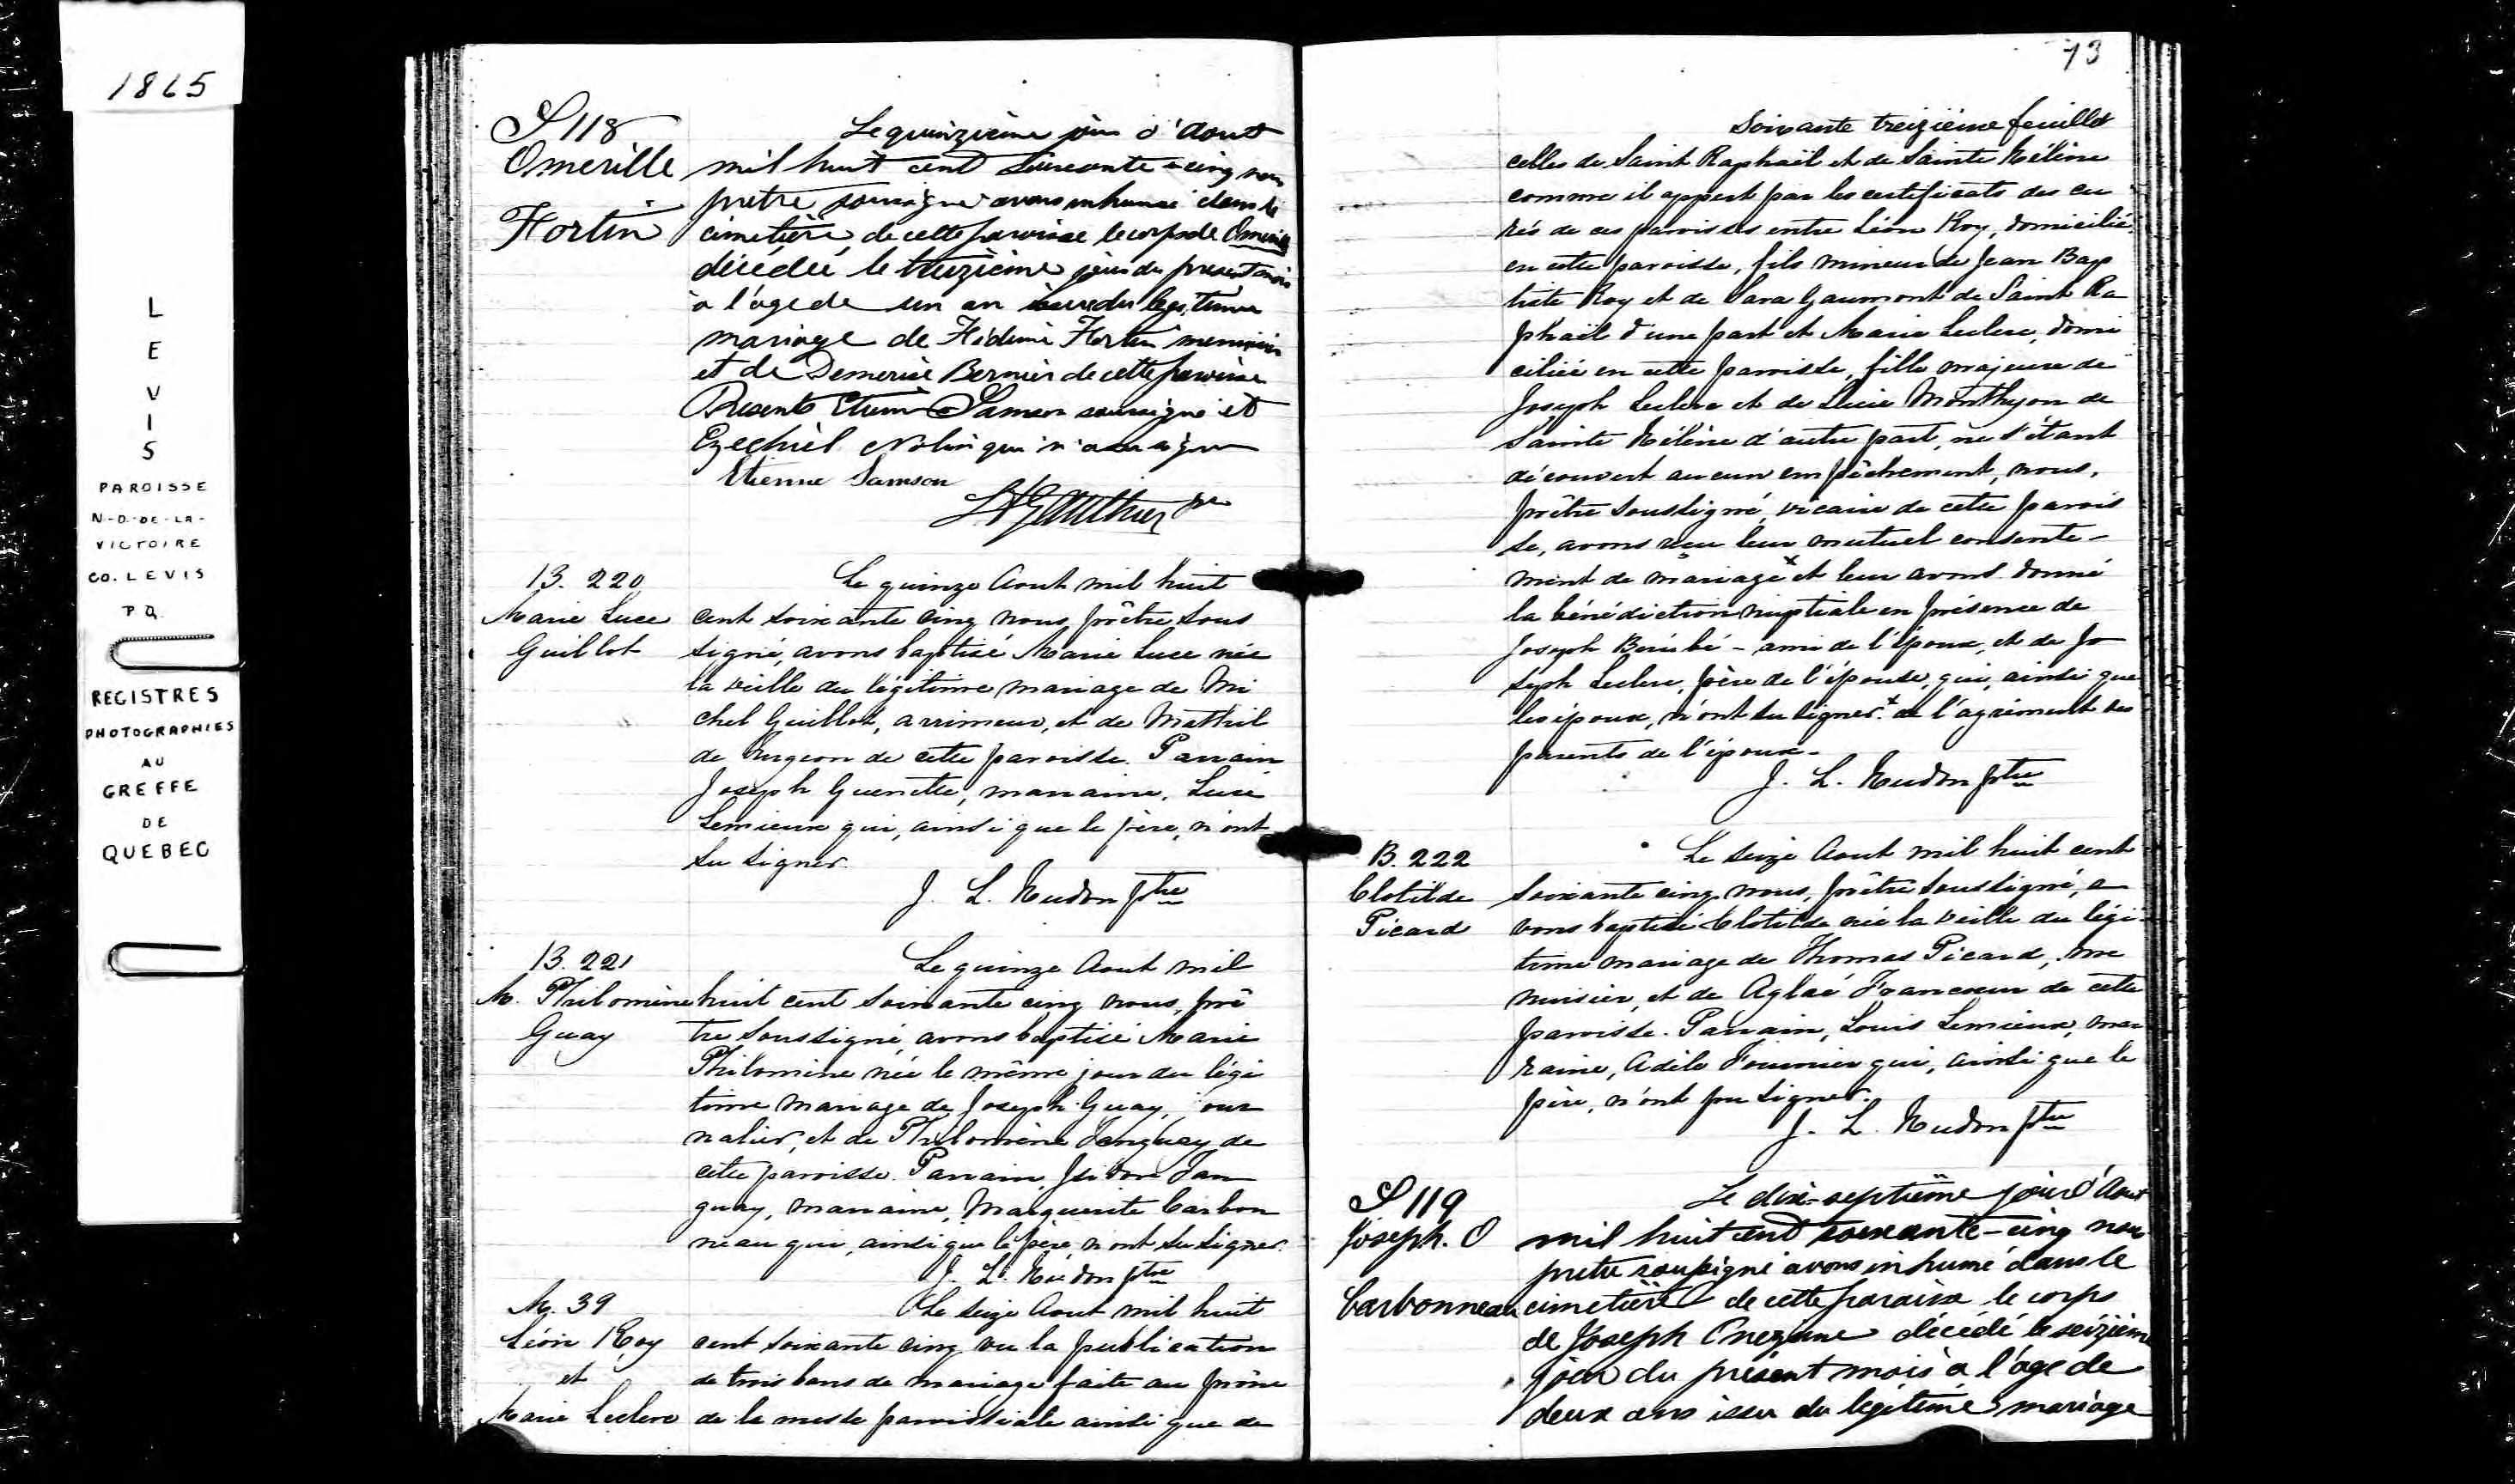 1865
L
E
V
I
S
PAROISSE
N-D-DE-LA-
VICTOIRE
CO. LEVIS
P Q.
REGISTRES
PHOTOGRAPHIES
AU
GREFFE
DE
QUEBEC
S 118
Omerille
Fortin
Le quinzième jour d'Aout
mil huit cent soixante-cinq nous
pretre soussigné avons inhumé dans le
cimetière de cette paroisse le corps de Omerille
décédée le treizième jour du present mois
à l'age de un an issue du legitime
mariage de Fortin menuisier
et de Demerise Bernier de cette paroisse
Presents Etienne Samson soussigné et
Ezechiel Nolin qui n'a su signer
Etienne Samson
Gauthier ptre
B. 220
Marie Luce
Guillot
Le quinze Aout mil huit
cent soixante cinq nous, prêtre sous
signé, avons baptisé Marie Luce née
la veille du légitime mariage de Mi
chel Guillot, arrimeur, et de Mathil
de Turgeon de cette paroisse. Parrain
Joseph Guenette, marraine, Luce
Lemieux qui, ainsi que le père, n'ont
su signer.
J. L. Hudon ptre
B. 221
M. Philomène
Guay
Le quinze Aout mil
huit cent soixante cinq nous, prê
tre soussigné, avons baptisé Marie
Philomène née le même jour du légi
time mariage de Joseph Guay, jour
nalier, et de Philomène Tanguay de
cette paroisse. Parrain, Isidore Tan
guay, marraine, Marguerite Carbon
neau qui, ainsi que le père, n'ont su signer.
J. L. Hudon ptre
M. 39
Léon Roy
et
Marie Leclerc
Le seize Aout mil huit
cent soixante cinq vu la publication
de trois bans de mariage faite au prône
de la messe paroissiale ainsi que de
73
Soixante treizième feuillet
celles de Saint Raphaël et de Sainte Hélène
comme il appert par les certificats des cu
rés de ces paroisses entre Léon Roy, domicilié
en cette paroisse, fils mineur de Jean Bap
tiste Roy et de Sara Gaumont de Saint Ra
phaël d'une part et Marie Leclerc, domi
ciliée en cette paroisse, fille majeure de
Joseph Leclerc et de Lucie Monthyon de
Sainte Hélène d'autre part, ne s'étant
découvert aucun empêchement, nous,
prêtre soussigné, vicaire de cette parois
se, avons reçu leur mutuel consente-
ment de mariage x et leur avons donné
la bénédiction nuptiale en présence de
Joseph Bérubé - ami de l'époux, et de Jo
seph Leclerc, père de l'épouse, qui, ainsi que
les époux, n'ont su signer. x de l'agrément des
parents de l'époux.
J. L. Hudon ptre
B. 222
Clotilde
Picard
Le seize Aout mil huit cent
soixante cinq nous, prêtre soussigné, a
vons baptisé Clotilde née la veille du légi
time mariage de Thomas Picard, me
nuisier, et de Aglaé Francoeur de cette
paroisse. Parrain, Louis Lemieux, mar
raine, Adèle Fournier qui, ainsi que le
père, n'ont pu signer.
J. L. Hudon ptre
S 119
Joseph. O
Carbonneau
Le dix-septième jour d'Aout
mil huit cent soixante-cinq nous
pretre soussigné avons inhumé dans le
cimetière de cette paroisse le corps
de Joseph Onezime décédé le seizieme
jour du présent mois à l'age de
deux ans issu du légitime mariage